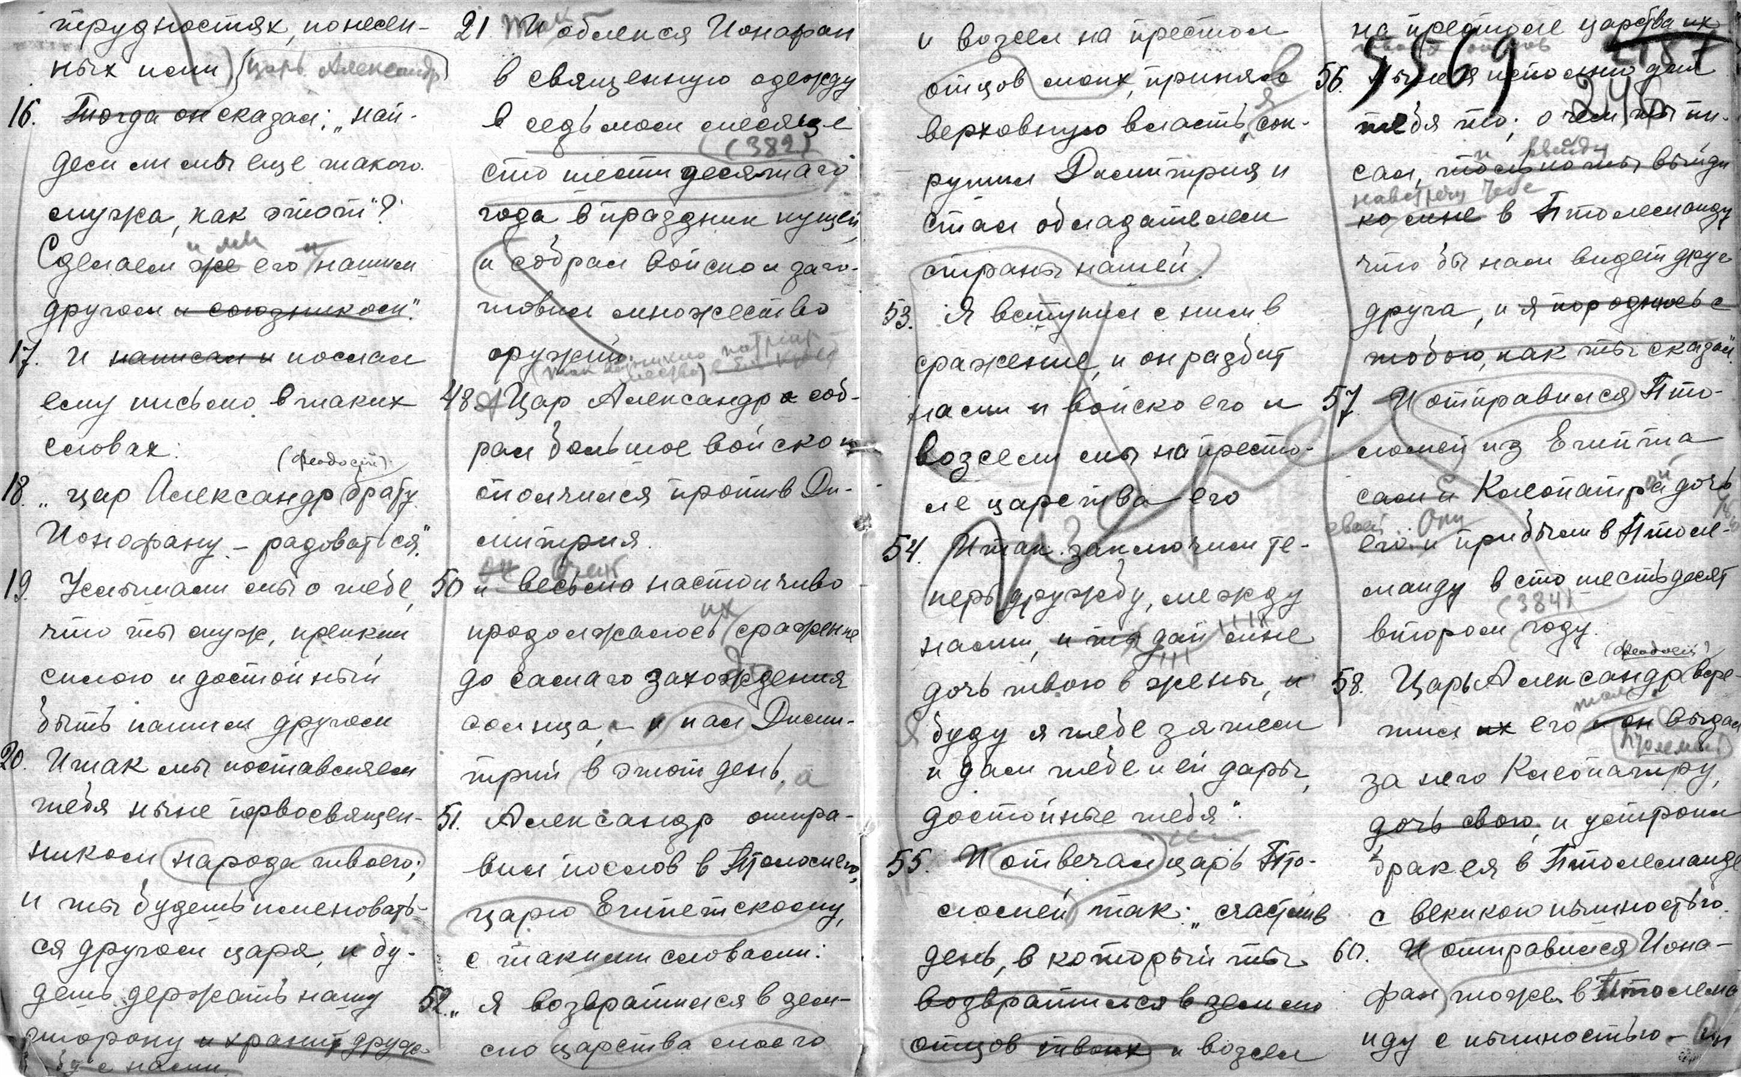 трудностях, понесен-
ных ими (царь Александр)
16. Тогда он сказал: „най-
дем ли мы еще такого
мужа, как этот"?
Сделаем же его нашим
и мы
другом и союзником".
17. И написал и послал
ему письмо в таких
словах:
(Феодосий)
18. „цар Александр брату
Ионафану – радоваться".
19. Услышали мы о тебе,
что ты муж, крепкий
силою и достойный
быть нашим другом
20. Итак мы поставляем
тебя ныне первосвящен-
ником народа твоего;
и ты будешь именовать-
ся другом царя, и бу-
дешь держать нашу
сторону и хранить друж-
бу с нами.
21 И облекся Ионафан
в священную одежду
в седьмом месяце
(382)
сто шестидесятаго
года в праздник кущей
и собрал войско и заго-
товил множество
оружий.
48. Цар Александр соб-
рал большое войско и
ополчился против Ди-
митрия.
50 и весьма настойчиво
их
продолжалось сражение
до самаго захождения
солнца, – и пал Дими-
трий в этот день, а
51. Александр отпра-
вил послов в Птоломею,
царю Египетскому,
с такими словами:
52. „Я возвратился в зем-
лю царства моего
и возсел на престол
отцов моих, принял
верховную власть, сок-
рушил Димитрия и
стал обладателем
страны нашей.
53. Я вступил с ним в
сражение, и он разбит
нами и войско его и
возсели мы на престо-
ле царства его
54. Итак заключим те-
перь дружбу, между
нами, и ты дай мне
дочь твою в жены, и
буду я тебе зятем
и дам тебе и ей дары,
достойные тебя".
55. И отвечал царь Пто-
ломей так: „счастлив
день, в который ты
возвратился в землю
отцов твоих и возсел
на престоле царства их
5569 2187
246
56. Ныне я исполню для
тебя то, о чем ты пи-
сал, только ты выйди
и выйду
навстречу тебе
ко мне в Птолемаиду
чтобы нам видеть друг
друга, и я породнюсь с
тобою, как ты сказал".
57. И отправился Пто-
ломей из Египта
сам и Клеопатра дочь
своей Они
его и прибыли в Птоле-
маиду в сто шестьдесят
(384)
втором году.
(Феодосий)
58. Царь Александр встре-
тил их его и он выдал
за него Клеопатру,
дочь свою, и устроил
брак ея в Птолемаиде
с великою пышностью.
60. И отправился Иона-
фан также в Птолема-
иду с пышностью – Он